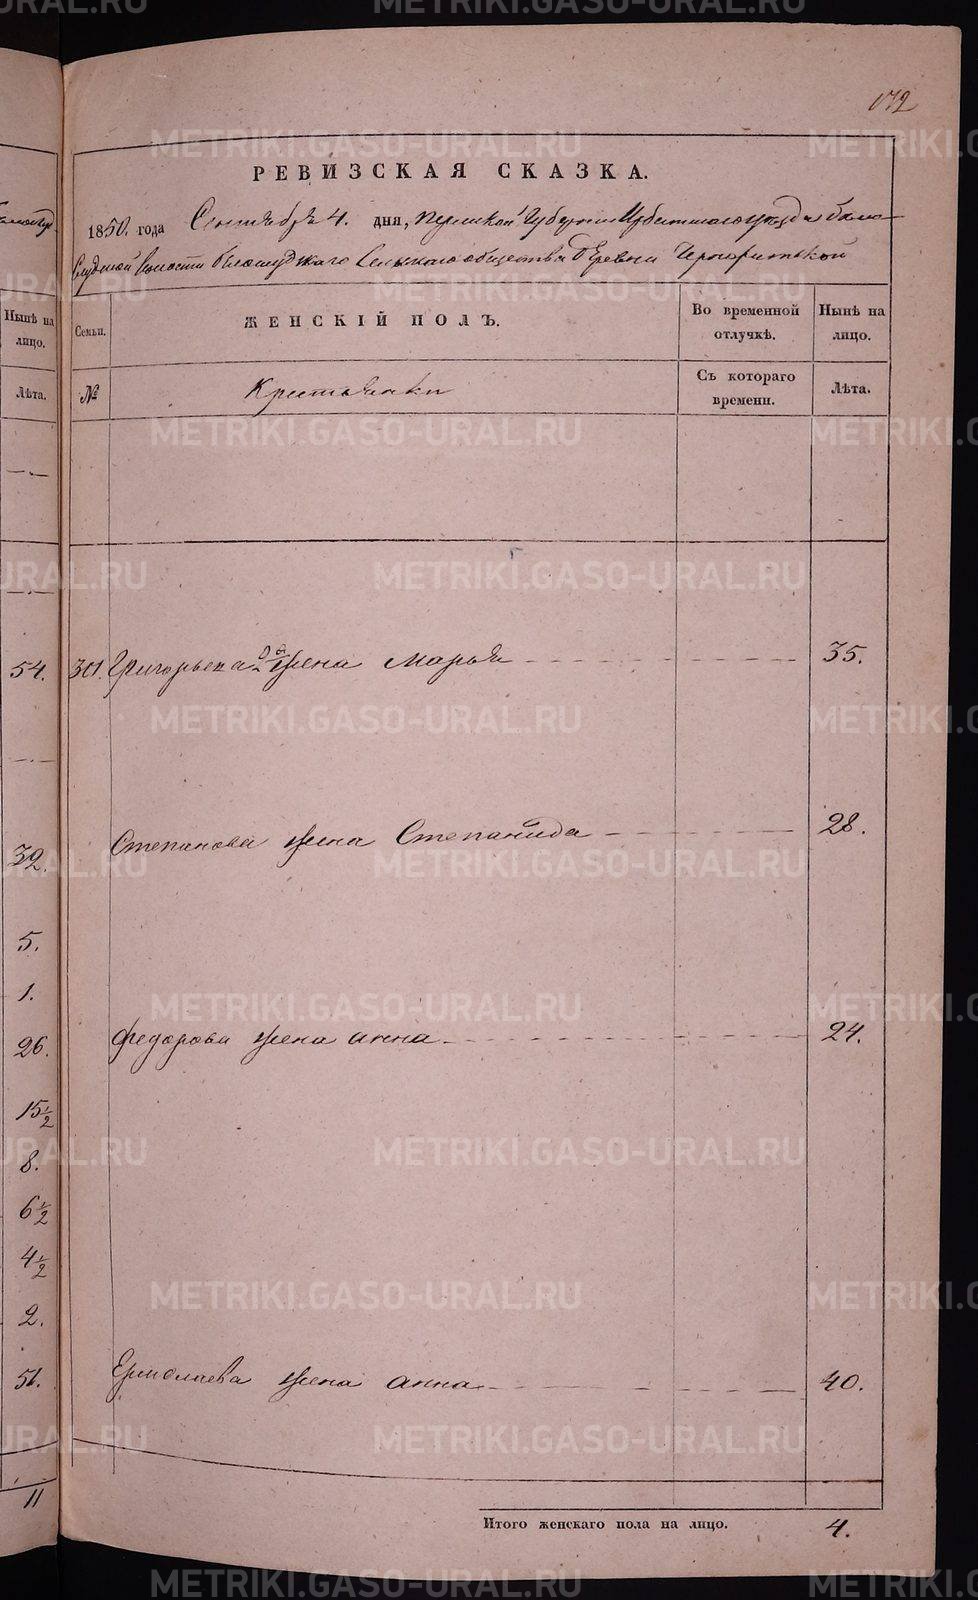 172
РЕВИЗСКАЯ СКАЗКА.
1850. года Сентября 4. дня, Пермской Губернии Ирбитского уезда Бело-
слудской Волости Белослудского Сельского общества деревни
Нынѣ на лицо.
Лѣта.
54.
32.
5.
1.
26.
15 1/2
8.
6 1/2
4 1/2
2.
51.
11
Семьи. ЖЕНСКІЙ ПОЛЪ. Во временной отлучкѣ. Нынѣ на лицо.
№ Крестьянки Съ котораго времени. Лѣта.
301. Григорьева 2я жена Марья 35.
Степанова жена Степанида 28.
Федорова жена Анна 24.
Ермолаева жена Анна 40.
Итого женскаго пола на лицо. 4.
METRIKI.GASO-URAL.RU